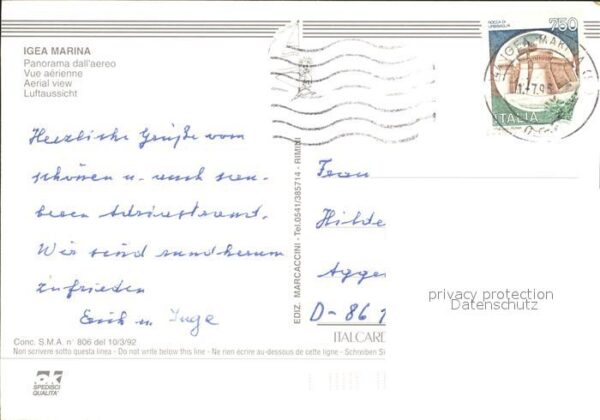 IGEA MARINA
Panorama dall'aereo
Vue aérienne
Aerial view
Luftaussicht
750
ROCCA DI
URBISAGLIA
IGEA MARINA
1.-7.95
ITALIA
Herzliche Grüße vom
schönen u. auch sau-
beren Adriastrand.
Wir sind rundherum
zufrieden
Erich u. Inge
EDIZ. MARCACCINI - Tel.0541/385714 - RIMINI
Frau
Hilde
Agger
D-86
privacy protection
Datenschutz
ITALCARD
Conc. S.M.A. n° 806 del 10/3/92
Non scrivere sotto questa linea - Do not write below this line - Ne rien écrire au-dessous de cette ligne - Schreiben Si
SPEDISCI
QUALITA'